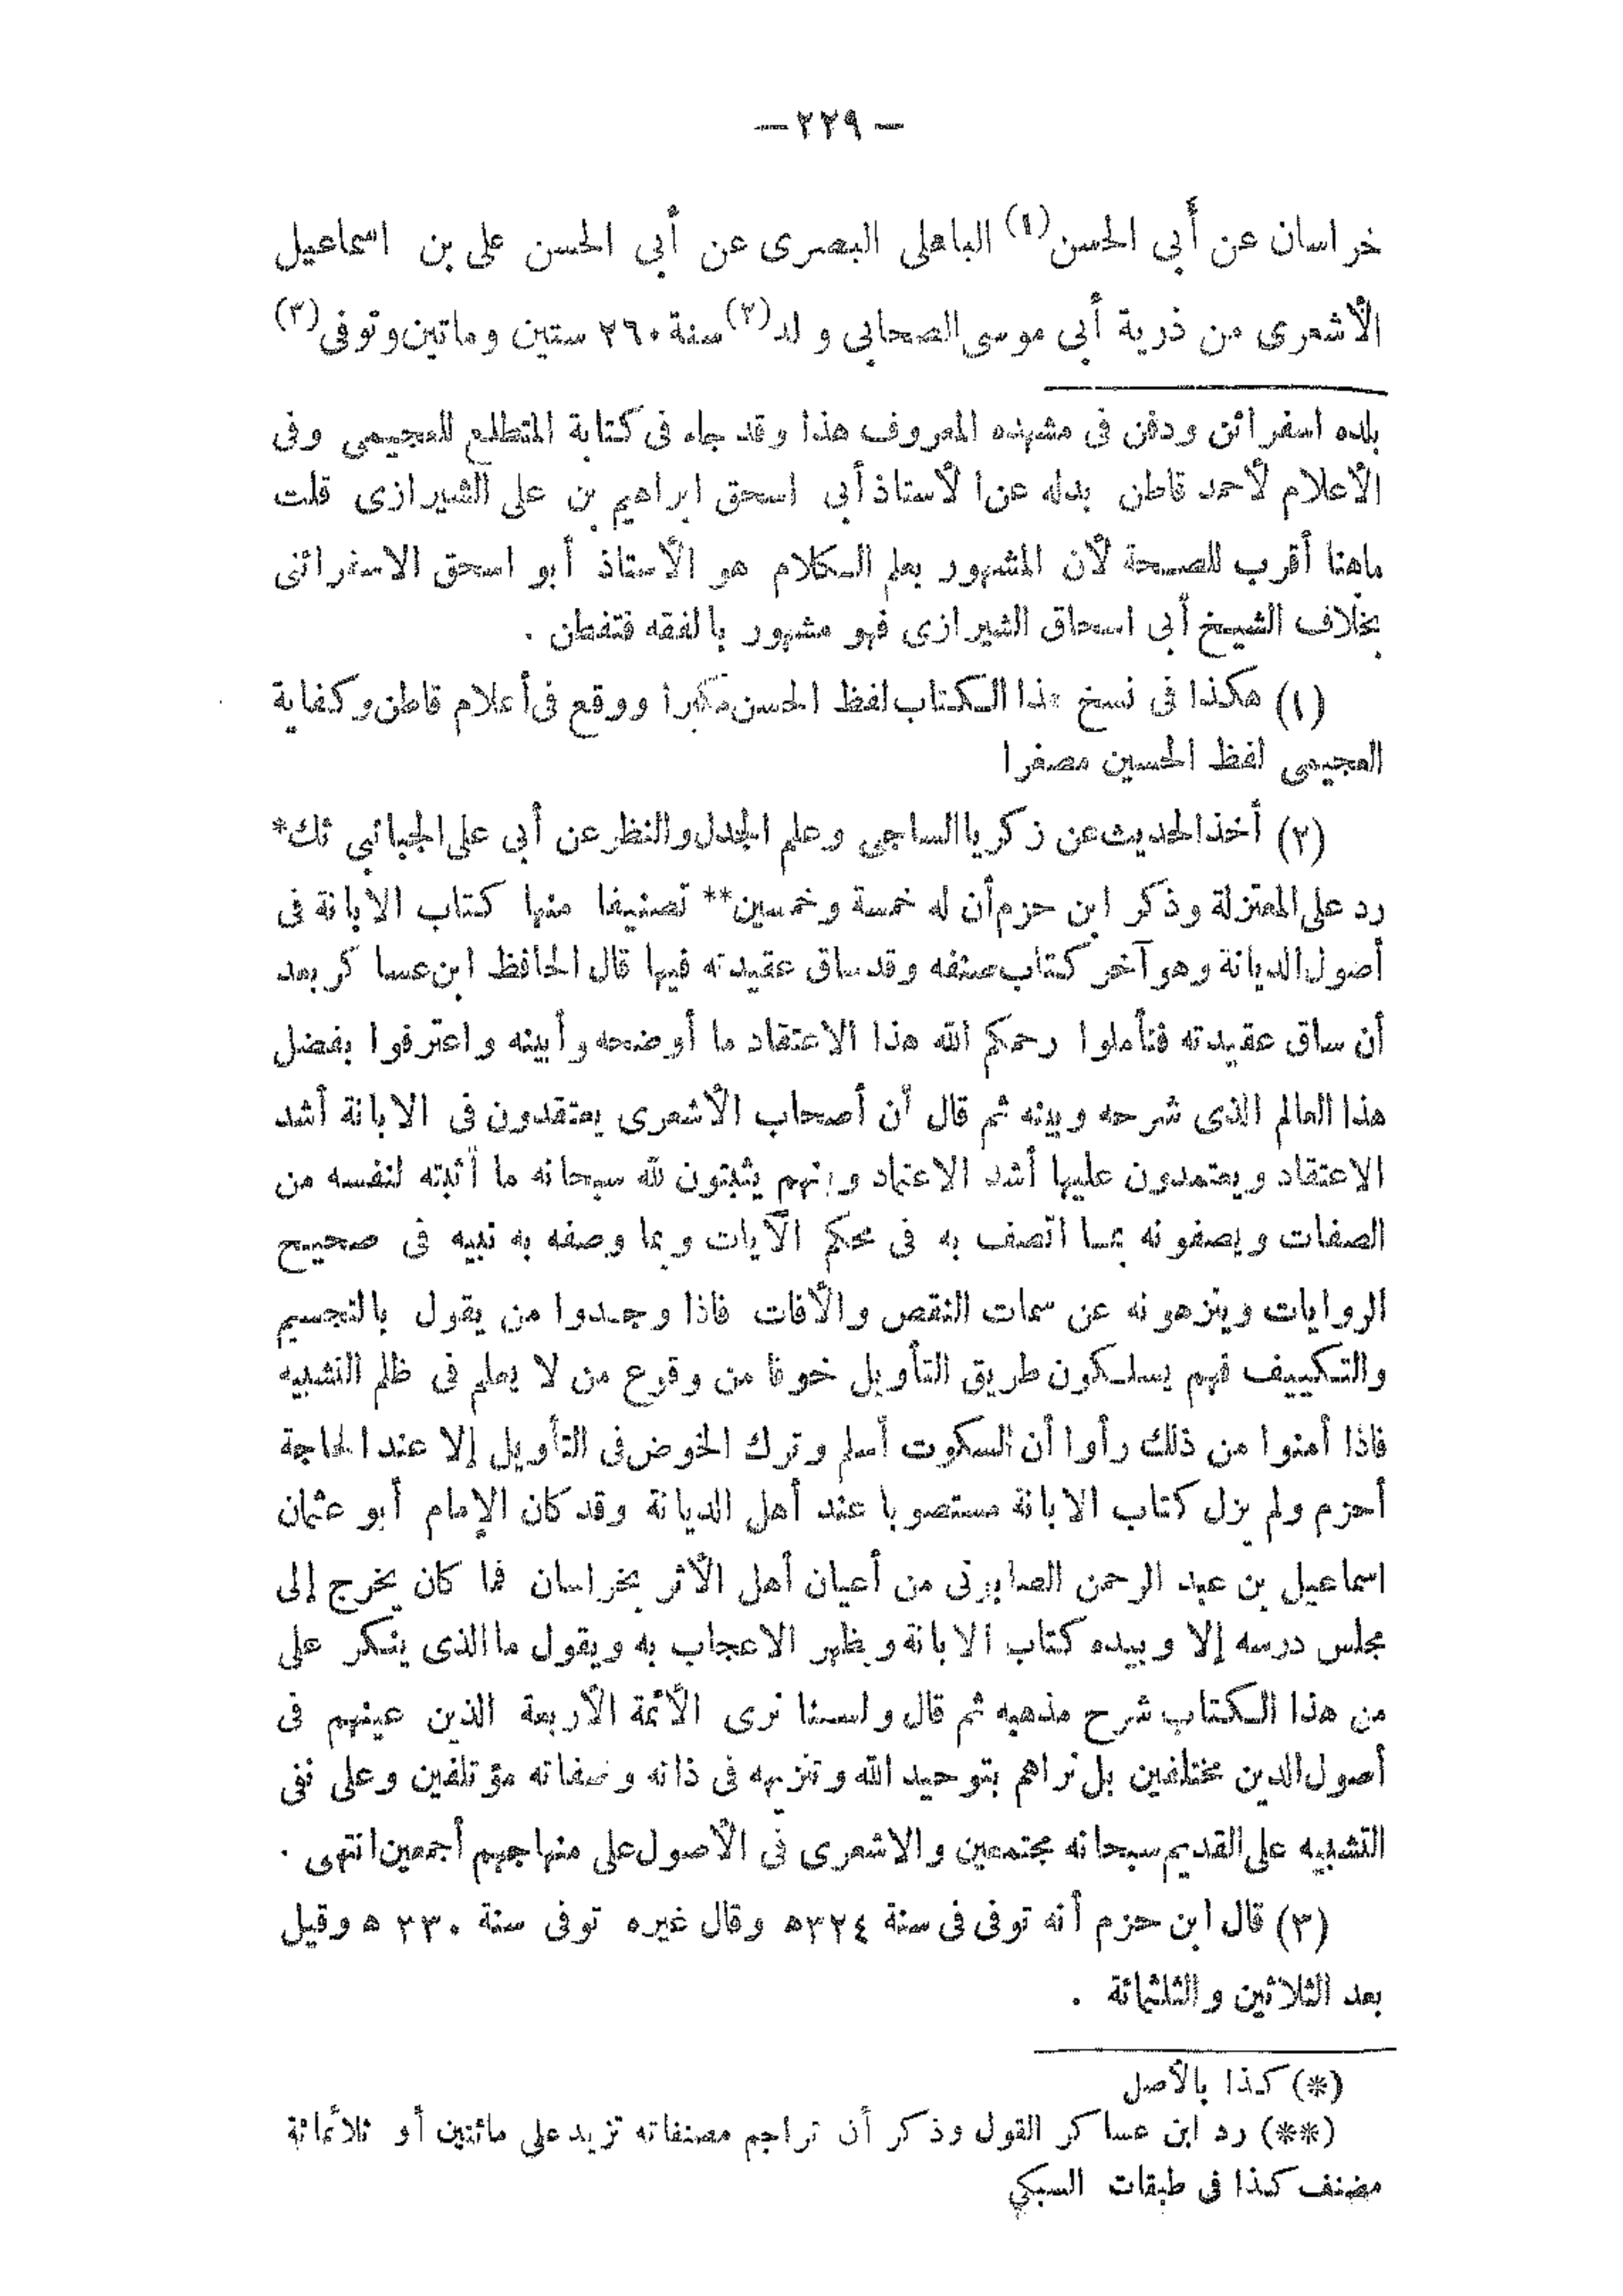 — ٢٢٩ —
خراسان عن أبي الحسن(١) الباهلى البصرى عن أبي الحسن على بن اسماعيل
الأشعرى من ذرية أبي موسى الصحابي ولد(٢) سنة ٢٦٠ ستين وماتين وتوفى(٣)
بلده اسفرائن ودفن فى مشهده المعروف هذا وقد جاء فى كتابة المتطلع للعجيمى وفى
الأعلام لأحمد قاطن بدله عن الأستاذ أبى اسحق ابراهيم بن على الشيرازى قلت
ماهنا أقرب للصحة لأن المشهور بعلم الكلام هو الأستاذ أبو اسحق الاسفرائنى
بخلاف الشيخ أبى اسحاق الشيرازى فهو مشهور بالفقه فتفطن .
(١) هكذا فى نسخ هذا الكتاب لفظ الحسن مكبرا ووقع فى أعلام قاطن وكفاية
العجيمى لفظ الحسين مصغرا
(٢) أخذ الحديث عن زكريا الساجى وعلم الجدل والنظر عن أبي على الجبائي ثك*
رد على المعتزلة وذكر ابن حزم أن له خمسة وخمسين** تصنيفا منها كتاب الابانة فى
أصول الديانة وهو آخر كتاب صنفه وقد ساق عقيدته فيها قال الحافظ ابن عساكر بعد
أن ساق عقيدته فتأملوا رحمكم الله هذا الاعتقاد ما أوضحه وأبينه واعترفوا بفضل
هذا العالم الذى شرحه وبينه ثم قال أن أصحاب الأشعرى يعتقدون فى الابانة أشد
الاعتقاد ويعتمدون عليها أشد الاعتماد وإنهم يثبتون لله سبحانه ما أثبته لنفسه من
الصفات ويصفونه بما اتصف به فى محكم الآيات وبما وصفه به نبيه فى صحيح
الروايات وينزهونه عن سمات النقص والأفات فاذا وجدوا من يقول بالتجسيم
والتكييف فهم يسلكون طريق التأويل خوفا من وقوع من لا يعلم فى ظلم التشبيه
فاذا أمنوا من ذلك رأوا أن السكوت أسلم وترك الخوض فى التأويل إلا عند الحاجة
أحزم ولم يزل كتاب الابانة مستصوبا عند أهل الديانة وقد كان الإمام أبو عثمان
اسماعيل بن عبد الرحمن الصابونى من أعيان أهل الأثر بخراسان فما كان يخرج إلى
مجلس درسه إلا وبيده كتاب الابانة ويظهر الاعجاب به ويقول ما الذى ينكر على
من هذا الكتاب شرح مذهبه ثم قال ولسنا نرى الأئمة الأربعة الذين عينهم فى
أصول الدين مختلفين بل نراهم بتوحيد الله وتنزيهه فى ذاته وصفاته مؤتلفين وعلى نفى
التشبيه على القديم سبحانه مجتمعين والاشعرى فى الأصول على منهاجهم أجمعين انتهى .
(٣) قال ابن حزم أنه توفى فى سنة ٣٢٤ه وقال غيره توفى سنة ٣٣٠ ه وقيل
بعد الثلاثين والثلثمائة .
(*) كذا بالأصل
(**) رد ابن عساكر القول وذكر أن تراجم مصنفاته تزيد على مائتين أو ثلاثمائة
مصنف كذا فى طبقات السبكي